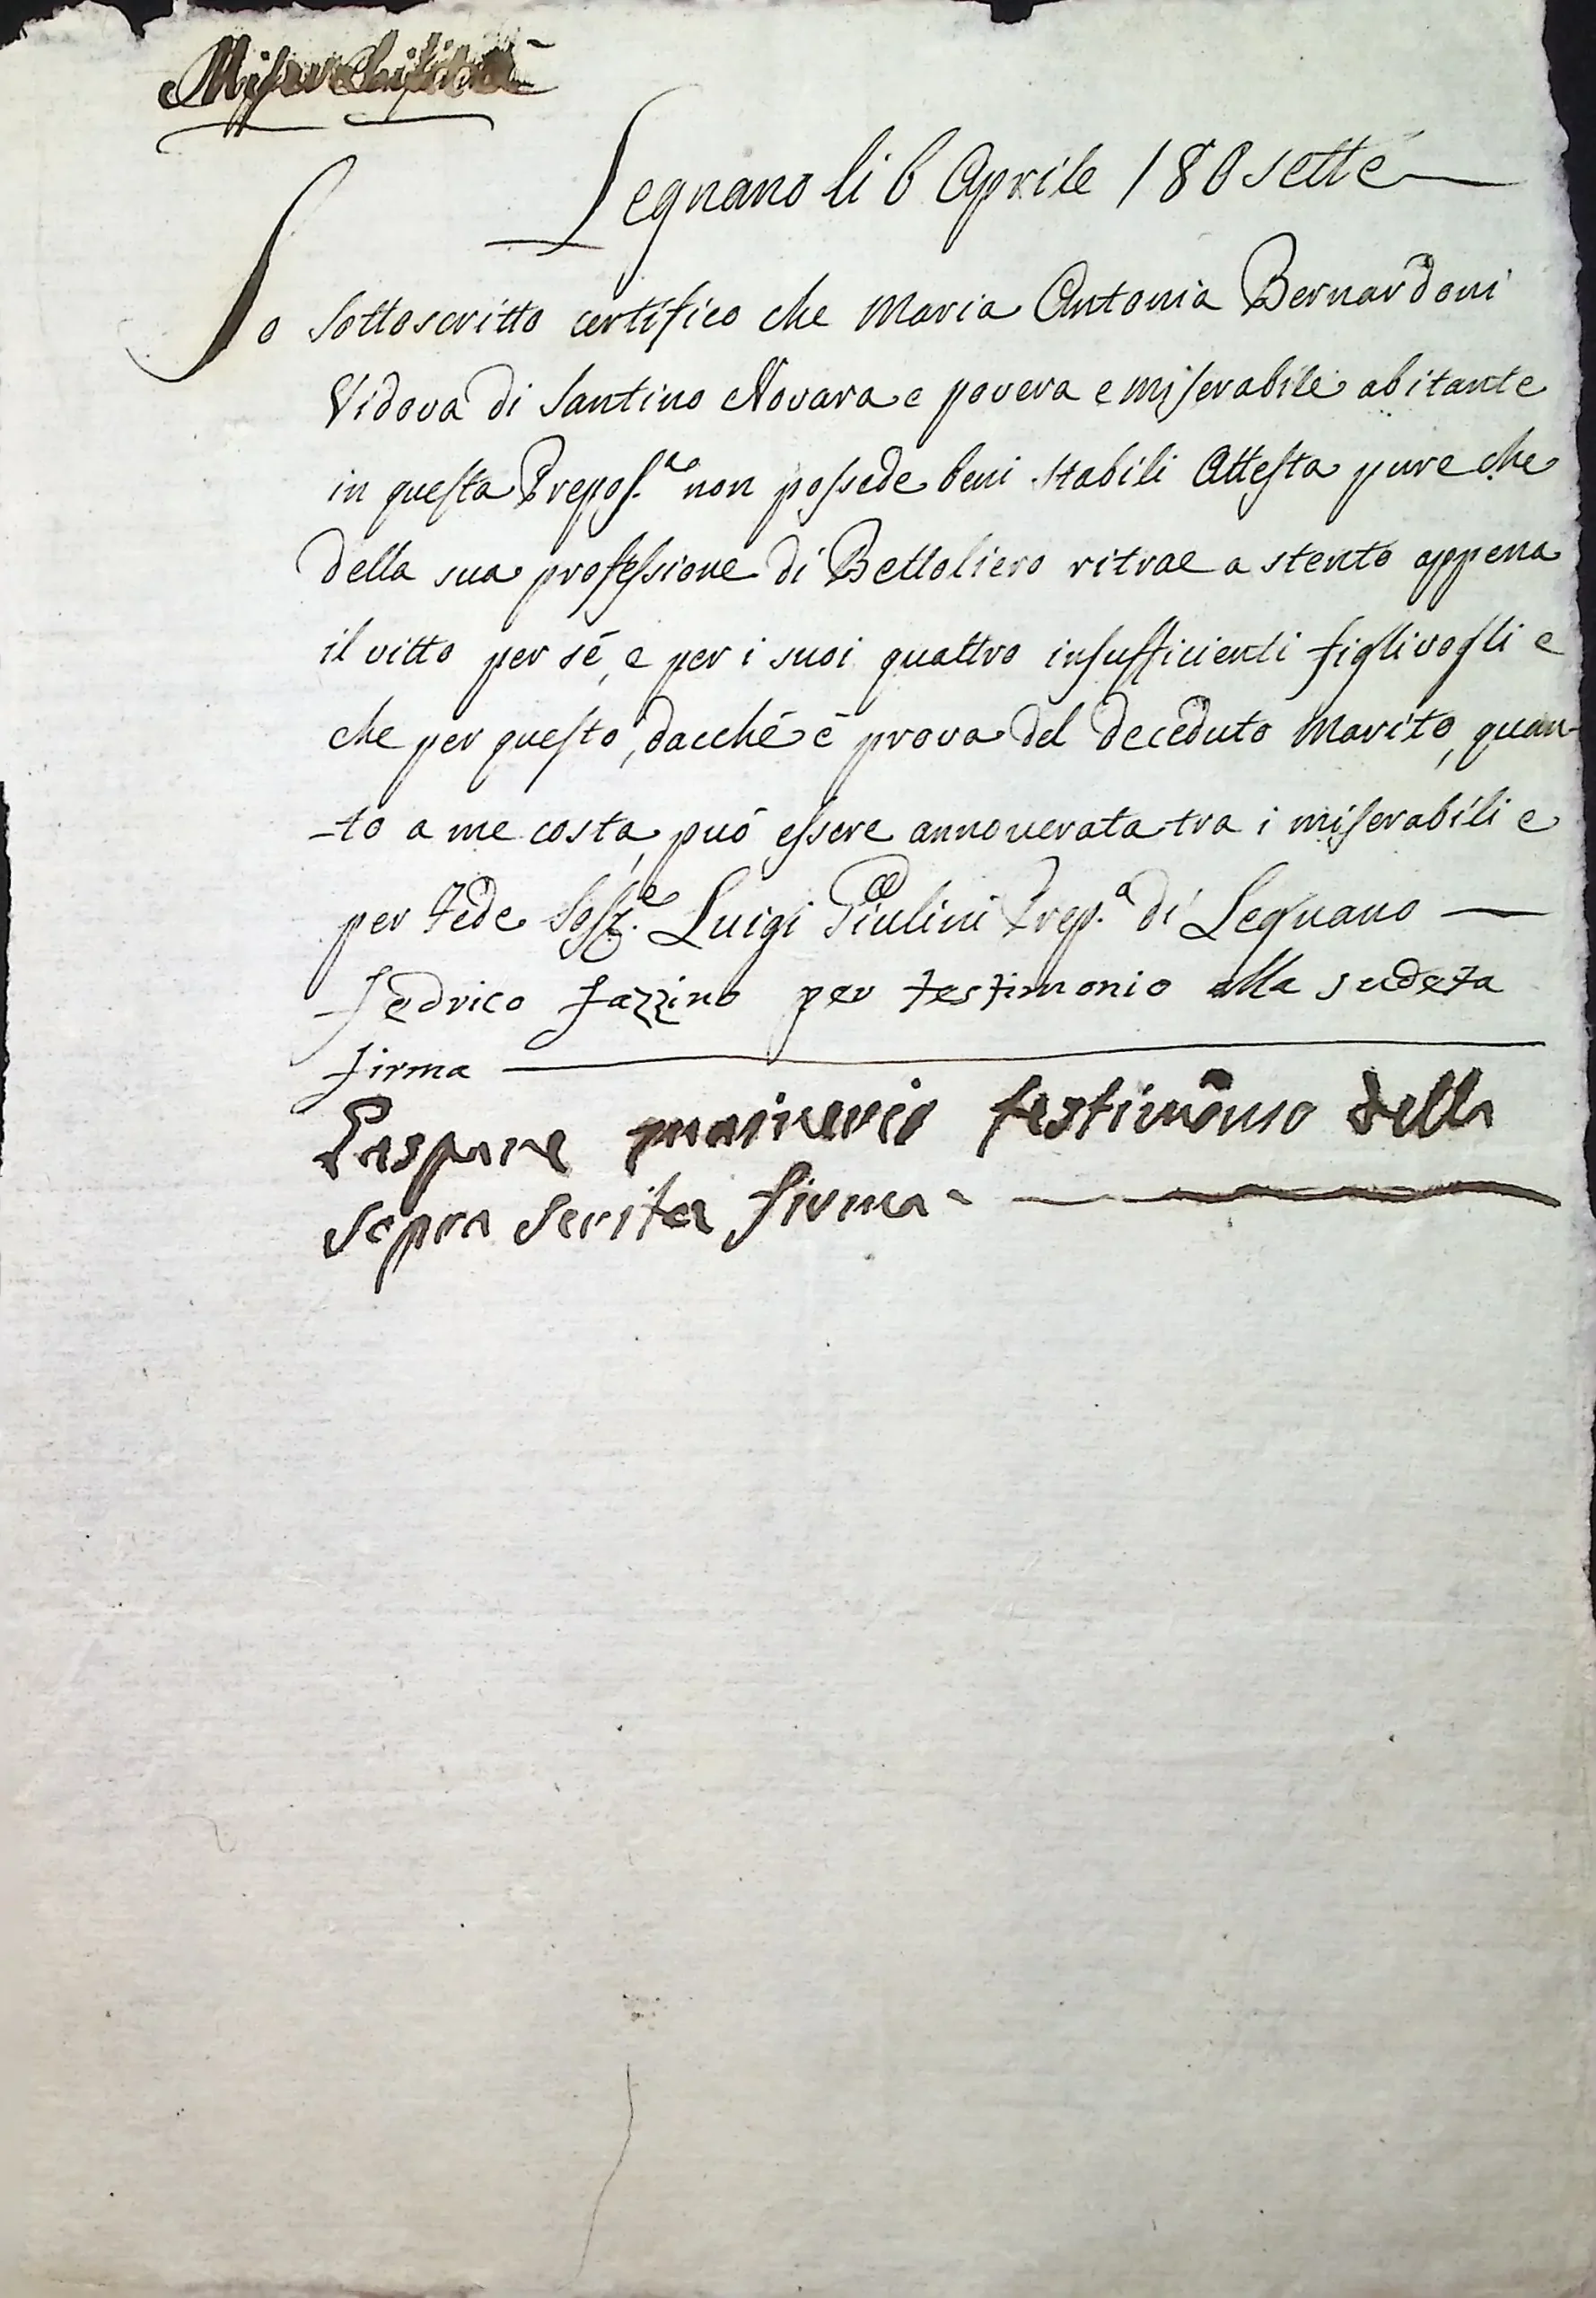 Legnano li 6 Aprile 180 sette
Io sottoscritto certifico che Maria Antonia Bernardoni
Vidova di Santino Novara e povera e miserabile abitante
in questa Prepos.ª non possede beni stabili Attesta pure che
della sua professione di Bettoliero ritrae a stento appena
il vitto per sé, e per i suoi quattro insufficienti figlivogli e
che per questo, dacché é prova del deceduto Marito, quan-
-to a me costa, può essere annoverata tra i miserabili e
per Fede Luigi Giulini Prep.º di Legnano
Fedrico Fazzino per testimonio alla sudeta
firma
Gaspare testimonio della
sopra scrita firma